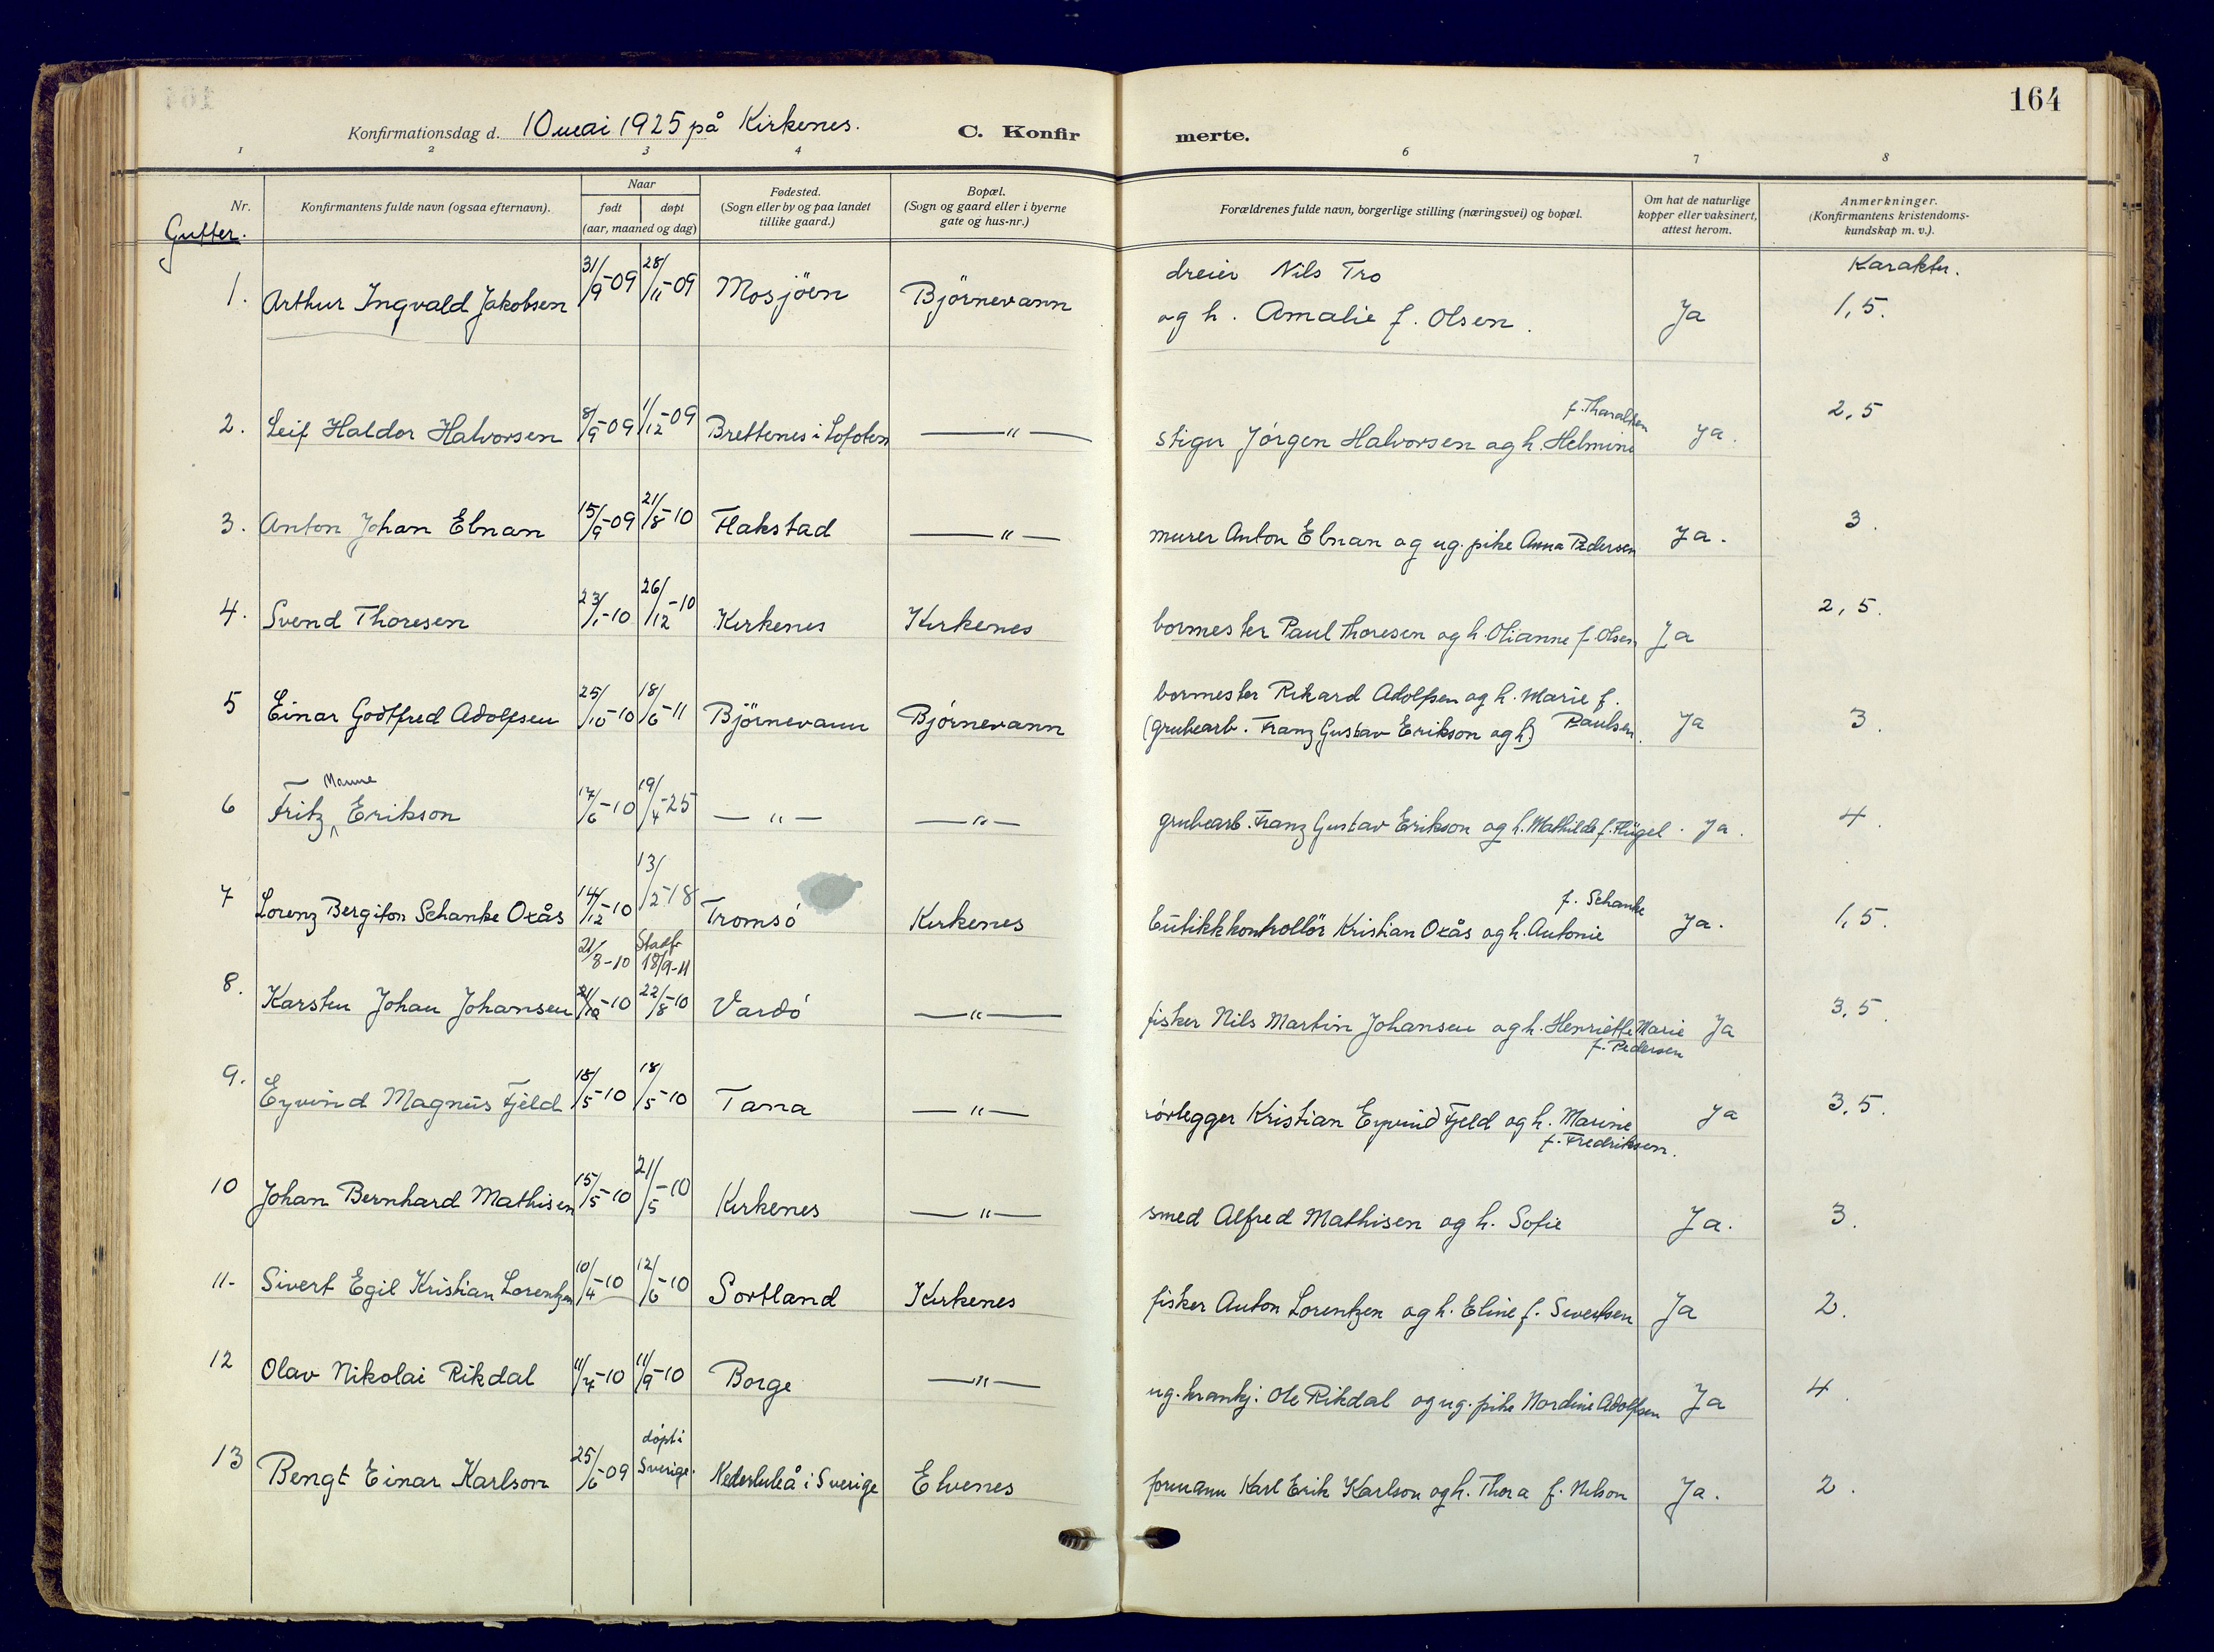 164
Konfirmationsdag d. 10 mai 1925 på Kirkenes.
C. Konfirmerte.
1 2 3 4 6 7 8
Nr.
Konfirmantens fulde navn (ogsaa efternavn).
Naar
født døpt
(aar, maaned og dag)
Fødested.
(Sogn eller by og paa landet
tillike gaard.)
Bopæl.
(Sogn og gaard eller i byerne
gate og hus-nr.)
Forældrenes fulde navn, borgerlige stilling (næringsvei) og bopæl.
Om hat de naturlige
kopper eller vaksinert,
attest herom.
Anmerkninger.
(Konfirmantens kristendoms-
kundskap m. v.).
Gutter.
Karakter.
dreier Nils Tro
1. Arthur Ingvald Jakobsen 31/9-09 28/11-09 Mosjöen Björnevann og h. Amalie f. Olsen. Ja 1,5.
f. Tharaldsen
2. Leif Haldor Halvorsen 8/9-09 1/12-09 Brettenes i Lofoten — " — stiger Jörgen Halvorsen og h. Helmine ja. 2,5
3. Anton Johan Ebnan 15/9-09 21/8-10 Flakstad — " — murer Anton Ebnan og ug. pike Anna Pedersen Ja. 3.
4. Svend Thoresen 23/1-10 26/12-10 Kirkenes Kirkenes bormester Paul Thoresen og h. Olianne f. Olsen Ja 2,5.
bormester Rikard Adolfsen og h. Marie f.
5 Einar Godtfred Adolfsen 25/10-10 18/6-11 Björnevann Björnevann (grubearb. Franz Gustav Erikson og h) Paulsen. Ja 3.
Manne
6 Fritz ^ Erikson 17/6-10 19/4-25 — " — — " — grubearb. Franz Gustav Erikson og h. Mathilde f. Flügel. Ja. 4.
f. Schanke
7 Lorenz Bergiton Schanke Oxås 14/12-10 13/2-18 Tromsö Kirkenes butikkkontrollör Kristian Oxås og h. Antonie Ja. 1,5.
21/8-10 Stadf. 18/9-11
8. Karsten Johan Johansen 21/10-10 22/8-10 Vardö — " — fisker Nils Martin Johansen og h. Henriette Marie Ja 3,5.
f. Pedersen
9. Eyvind Magnus Fjeld 18/5-10 18/5-10 Tana — " — rörlegger Kristian Eyvind Fjeld og h. Marine Ja 3,5.
f. Fredriksen.
10 Johan Bernhard Mathisen 15/5-10 21/5-10 Kirkenes — " — smed Alfred Mathisen og h. Sofie Ja. 3.
11- Sivert Egil Kristian Lorentzen 10/4-10 12/6-10 Sortland Kirkenes fisker Anton Lorentzen og h. Eline f. Sivertsen Ja 2.
12 Olav Nikolai Rikdal 11/7-10 11/9-10 Borge — " — ug. krankj: Ole Rikdal og ug. pike Nordine Adolfsen Ja 4.
døpt i
13 Bengt Einar Karlson 25/6-09 Sverige. Nederluleå i Sverige Elvenes formann Karl Erik Karlson og h. Thora f. Nilson Ja. 2.